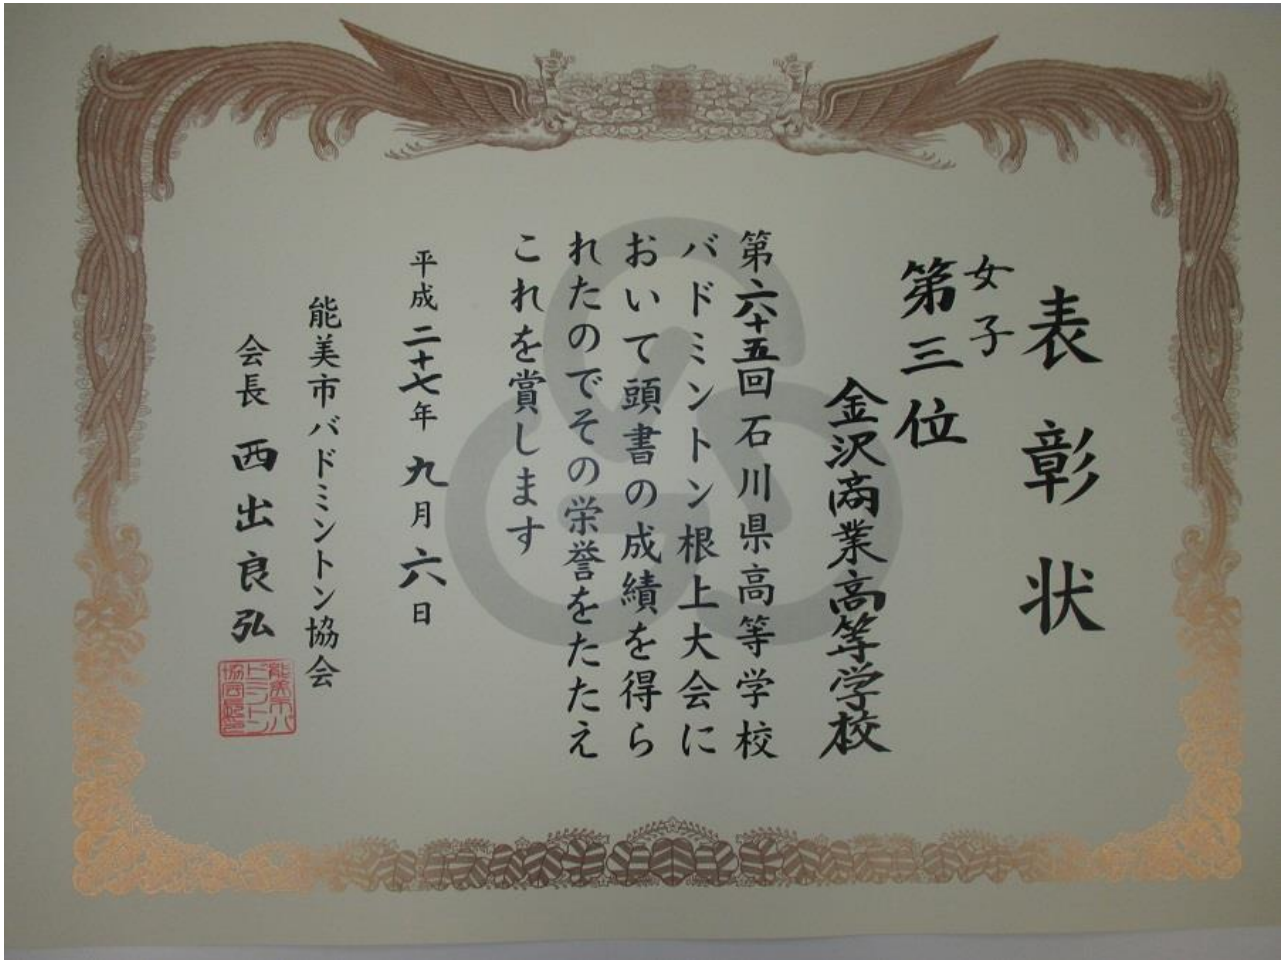 表彰状
女子
第三位
金沢商業高等学校
第六十五回石川県高等学校
バドミントン根上大会に
おいて頭書の成績を得ら
れたのでその栄誉をたたえ
これを賞します
平成二十七年九月六日
能美市バドミントン協会
会長 西出良弘